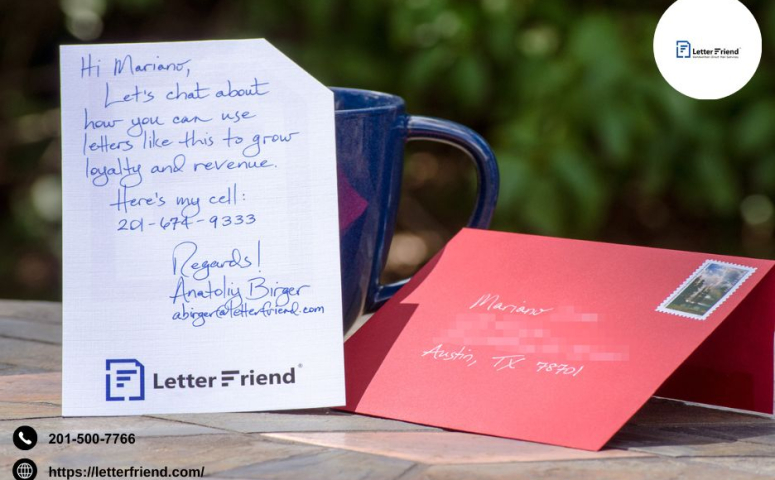 Hi Mariano,
Let's chat about
how you can use
letters like this to grow
loyalty and revenue.
Here's my cell:
201-674-9333
Regards!
Anatoliy Birger
abirger@letterfriend.com
Letter Friend®
Mariano
Austin, TX 78701
Letter Friend
201-500-7766
https://letterfriend.com/